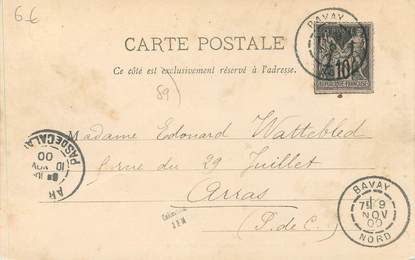 6 €
BAVAY
CARTE POSTALE
10
REPUBLIQUE FRANÇAISE
Ce côté est exclusivement réservé à l'adresse.
89
Madame Edouard Wattebled
rue du 29 Juillet
Arras
(P. de C.)
PAS DE CALAIS
10
NOV
00
BAVAY
9
NOV
00
NORD